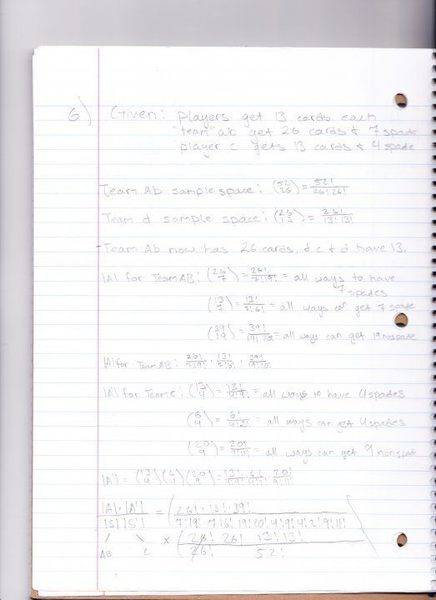 6) Given: players get 13 cards each
"team" ab get 26 cards & 7 spade
player c gets 13 cards & 4 spade
Team Ab sample space: (52 26) = 52!/26!26!
Team d sample space: (26 13) = 26!/13!13!
Team Ab now has 26 cards, & c & d have 13.
|A| for Team AB: (26 7) = 26!/7!19! = all ways to have 7 spades
(13 7) = 13!/7!6! = all ways of get 7 spade
(39 19) = 39!/19!20! = all ways can get 19 nospade
|A| for Team AB:
|A'| for Team c: (13 4) = 13!/4!9! = all ways to have 4 spades
(6 4) = 6!/4!2! = all ways can get 4 spades
(20 9) = 20!/9!11! = all ways can get 9 nonspade
|A'| = (13 4)(6 4)(20 9) =
|A|·|A'| / |S||S'| =
AB c
× 26! 26! 13! 13! / 26! 52!